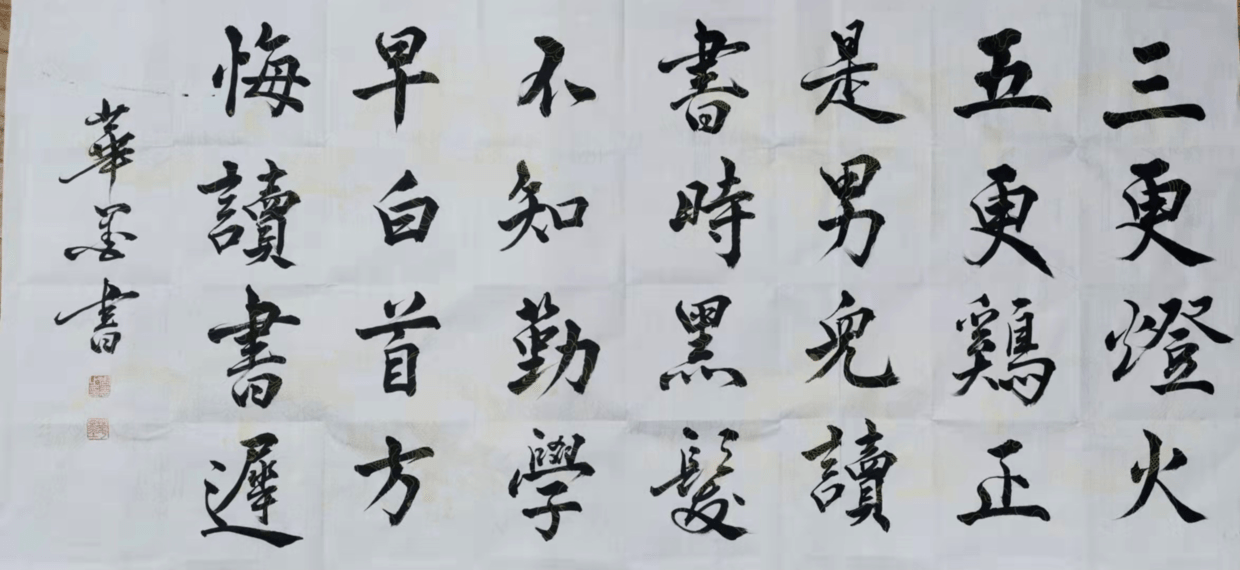 三更燈火
五更鷄正
是男兒讀
書時黑髮
不知勤學
早白首方
悔讀書遲
華墨书